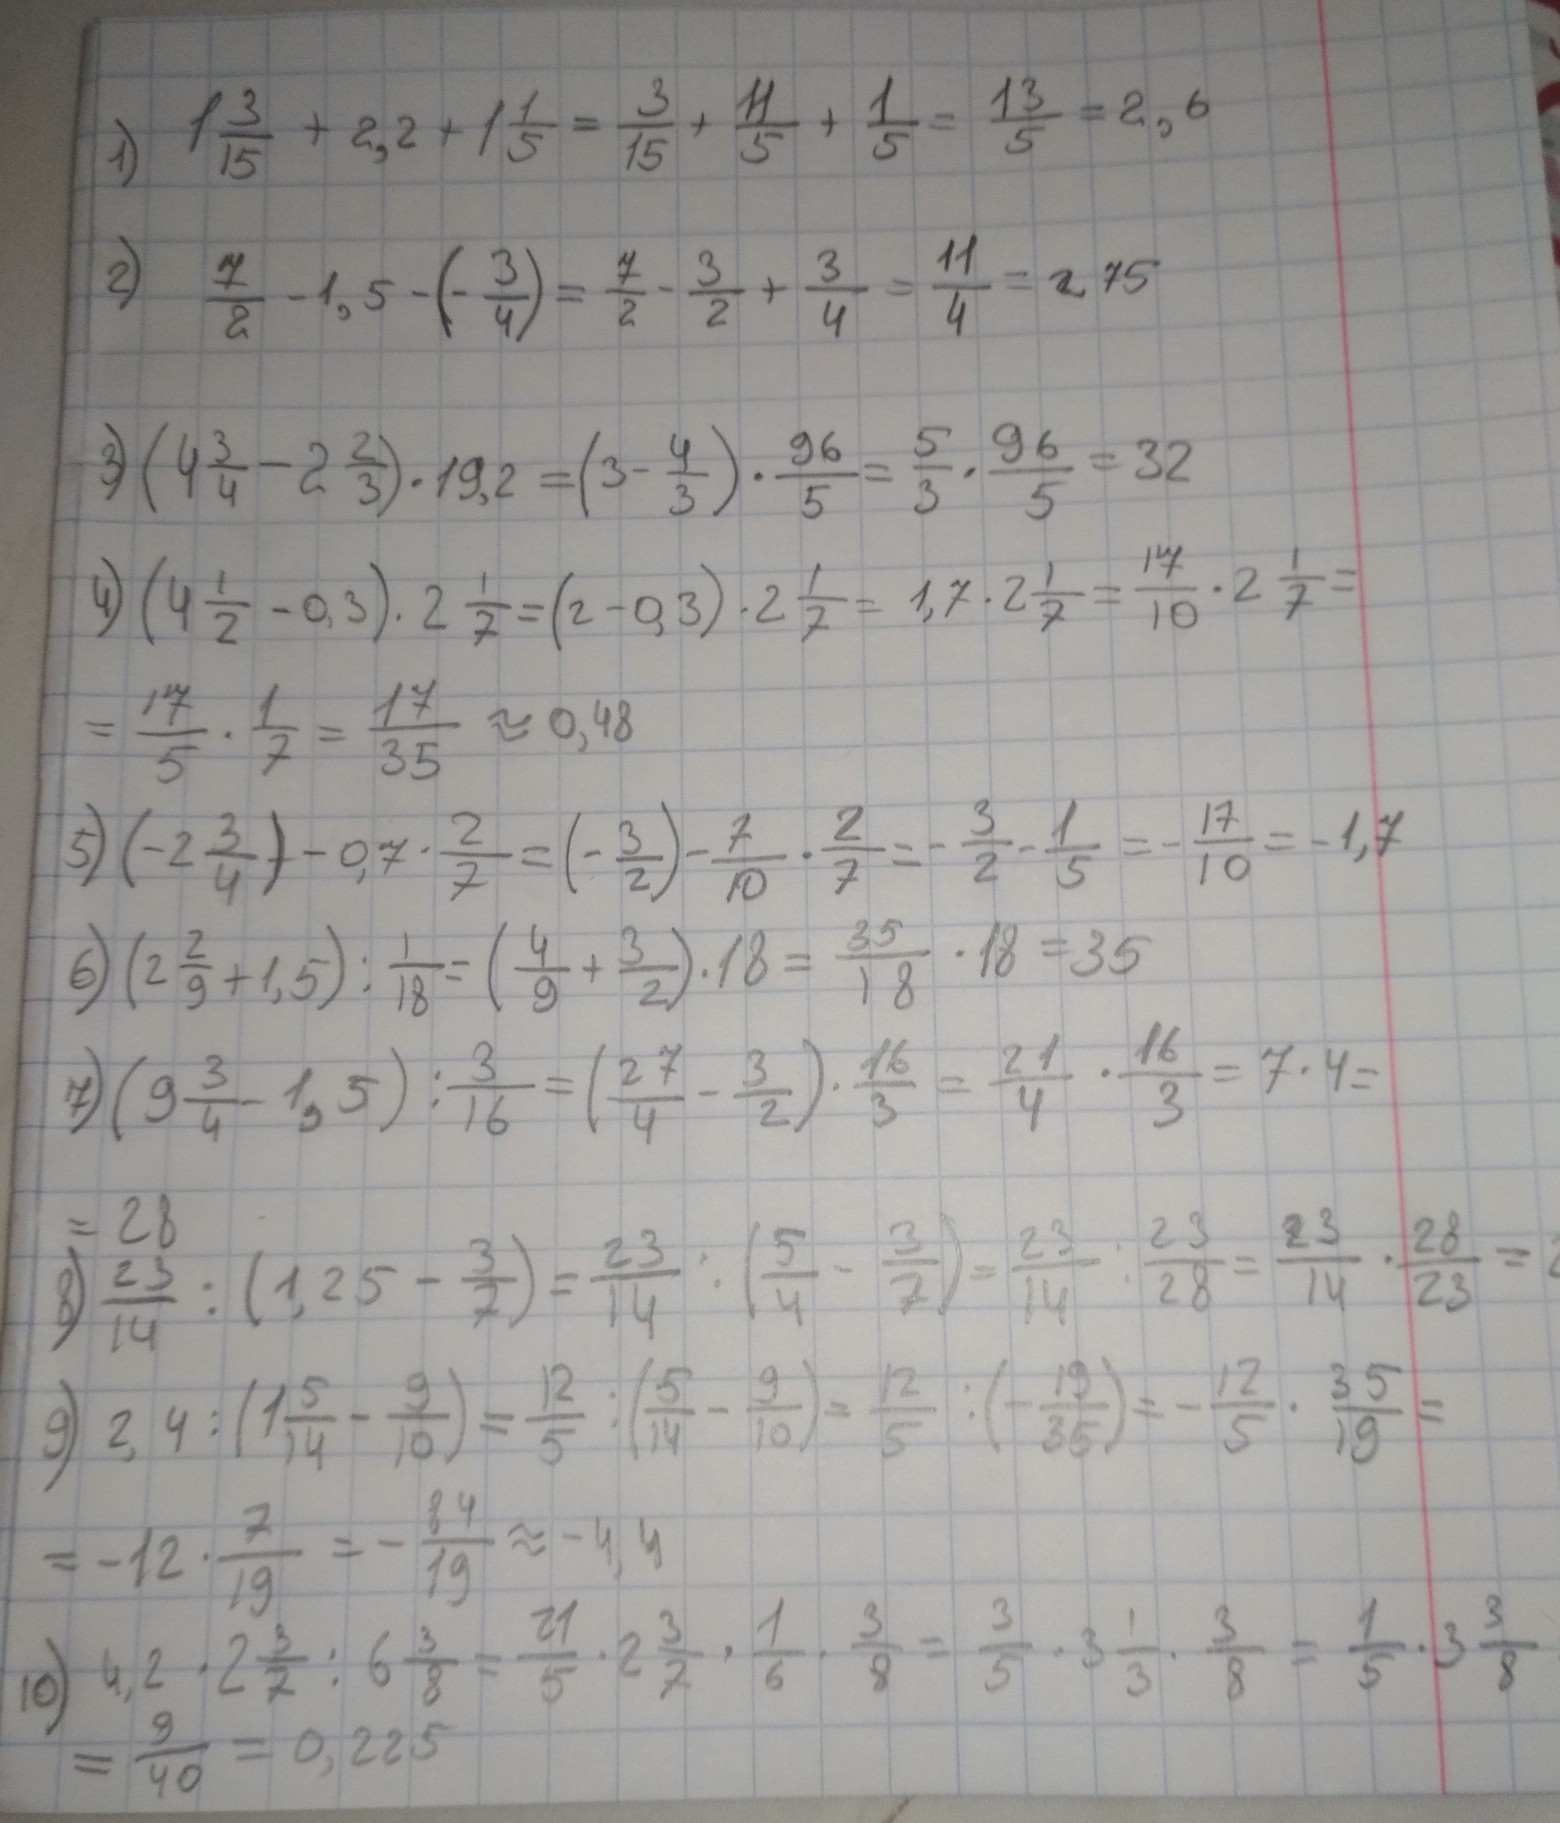 1) 1 3/15 + 2,2 + 1 1/5 = 3/15 + 11/5 + 1/5 = 13/5 = 2,6
2) 7/2 - 1,5 - (- 3/4) = 7/2 - 3/2 + 3/4 = 11/4 = 2,75
3) (4 3/4 - 2 2/3) · 19,2 = (3 - 4/3) · 96/5 = 5/3 · 96/5 = 32
4) (4 1/2 - 0,3) · 2 1/7 = (2 - 0,3) · 2 1/7 = 1,7 · 2 1/7 = 17/10 · 2 1/7 =
= 17/5 · 1/7 = 17/35 ≈ 0,48
5) (-2 3/4) - 0,7 · 2/7 = (- 3/2) - 7/10 · 2/7 = - 3/2 - 1/5 = - 17/10 = -1,7
6) (2 2/9 + 1,5) : 1/18 = (4/9 + 3/2) · 18 = 35/18 · 18 = 35
7) (9 3/4 - 1,5) : 3/16 = (27/4 - 3/2) · 16/3 = 21/4 · 16/3 = 7 · 4 =
= 28
8) 23/14 : (1,25 - 3/7) = 23/14 : (5/4 - 3/7) = 23/14 : 23/28 = 23/14 · 28/23 =
9) 2,4 : (1 5/14 - 9/10) = 12/5 : (5/14 - 9/10) = 12/5 : (- 19/35) = - 12/5 · 35/19 =
= -12 · 7/19 = - 84/19 ≈ -4,4
10) 4,2 · 2 3/7 : 6 3/8 = 21/5 · 2 3/7 · 1/6 · 3/8 = 3/5 · 3 1/3 · 3/8 = 1/5 · 3 3/8
= 9/40 = 0,225